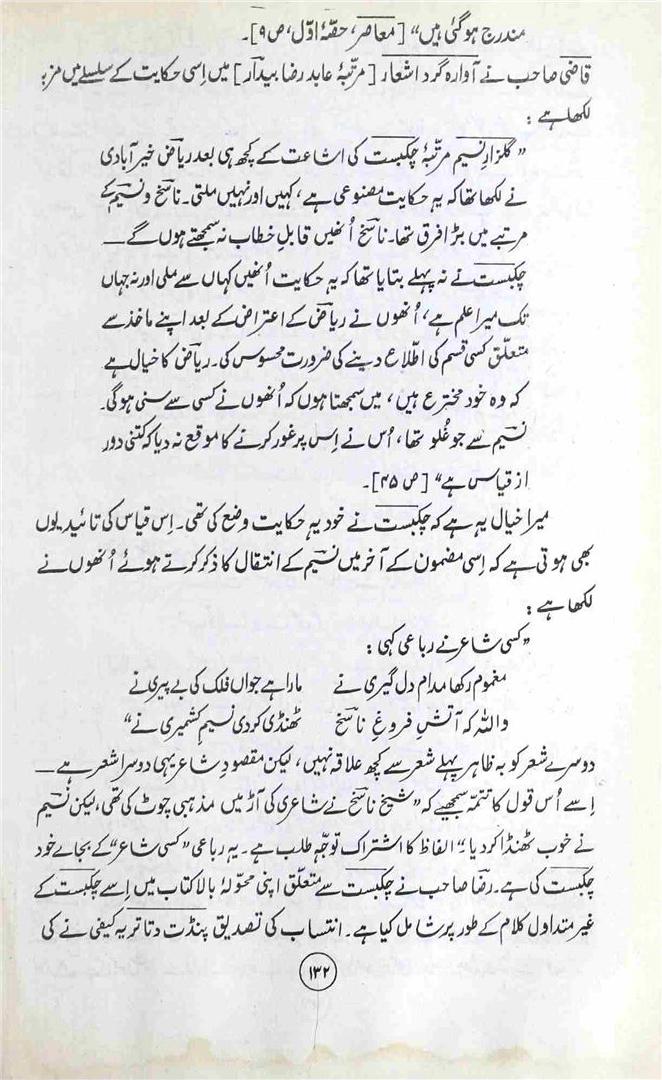 مندرج ہو گئی ہیں“ [معاصر، حصّۂ اوّل، ص ۹]۔
قاضی صاحب نے آوارہ گرد اشعار [مرتّبۂ عابد رضا بیدار] میں اِسی حکایت کے سلسلے میں مزید
لکھا ہے :
”گلزارِ نسیم مرتّبۂ چکبست کی اشاعت کے کچھ ہی بعد ریاضؔ خیرآبادی
نے لکھا تھا کہ یہ حکایت مصنوعی ہے، کہیں اور نہیں ملتی۔ ناسخؔ و نسیمؔ کے
مرتبے میں بڑا فرق تھا۔ ناسخؔ اُنھیں قابلِ خطاب نہ سمجھتے ہوں گے ــــ
چکبست نے نہ پہلے بتایا تھا کہ یہ حکایت اُنھیں کہاں سے ملی اور نہ جہاں
تک میرا علم ہے، اُنھوں نے ریاضؔ کے اعتراض کے بعد اپنے ماخذ سے
متعلّق کسی قسم کی اطّلاع دینے کی ضرورت محسوس کی۔ ریاضؔ کا خیال ہے
کہ وہ خود مخترع ہیں، میں سمجھتا ہوں کہ اُنھوں نے کسی سے سنی ہوگی۔
نسیمؔ سے جو غُلو تھا، اُس نے اِس پر غور کرنے کا موقع نہ دیا کہ کتنی دور
از قیاس ہے“ [ص ۴۵]۔
میرا خیال یہ ہے کہ چکبست نے خود یہ حکایت وضع کی تھی۔ اِس قیاس کی تائید یوں
بھی ہوتی ہے کہ اِسی مضمون کے آخر میں نسیمؔ کے انتقال کا ذکر کرتے ہوئے اُنھوں نے
لکھا ہے :
”کسی شاعر نے رباعی کہی :
مغموم رکھا مدام دل گیری نے مارا ہے جواں فلک کی بے پیری نے
واللہ کہ آتشِ فروغِ ناسخؔ ٹھنڈی کردی نسیمِ کشمیری نے“
دوسرے شعر کو بہ ظاہر پہلے شعر سے کچھ علاقہ نہیں، لیکن مقصودِ شاعر یہی دوسرا شعر ہے ــــ
اِسے اُس قول کا تتمّہ سمجھیے کہ ”شیخ ناسخؔ نے شاعری کی آڑ میں مذہبی چوٹ کی تھی، لیکن نسیمؔ
نے خوب ٹھنڈا کر دیا“، الفاظ کا اشتراک توجّہ طلب ہے۔ یہ رباعی ”کسی شاعر“ کے بجاے خود
چکبست کی ہے۔ رضاؔ صاحب نے چکبست سے متعلّق اپنی محوّلۂ بالا کتاب میں اِسے چکبست کے
غیر متداول کلام کے طور پر شامل کیا ہے۔ انتساب کی تصدیق پنڈت دتاتریہ کیفی نے کی
۱۳۲